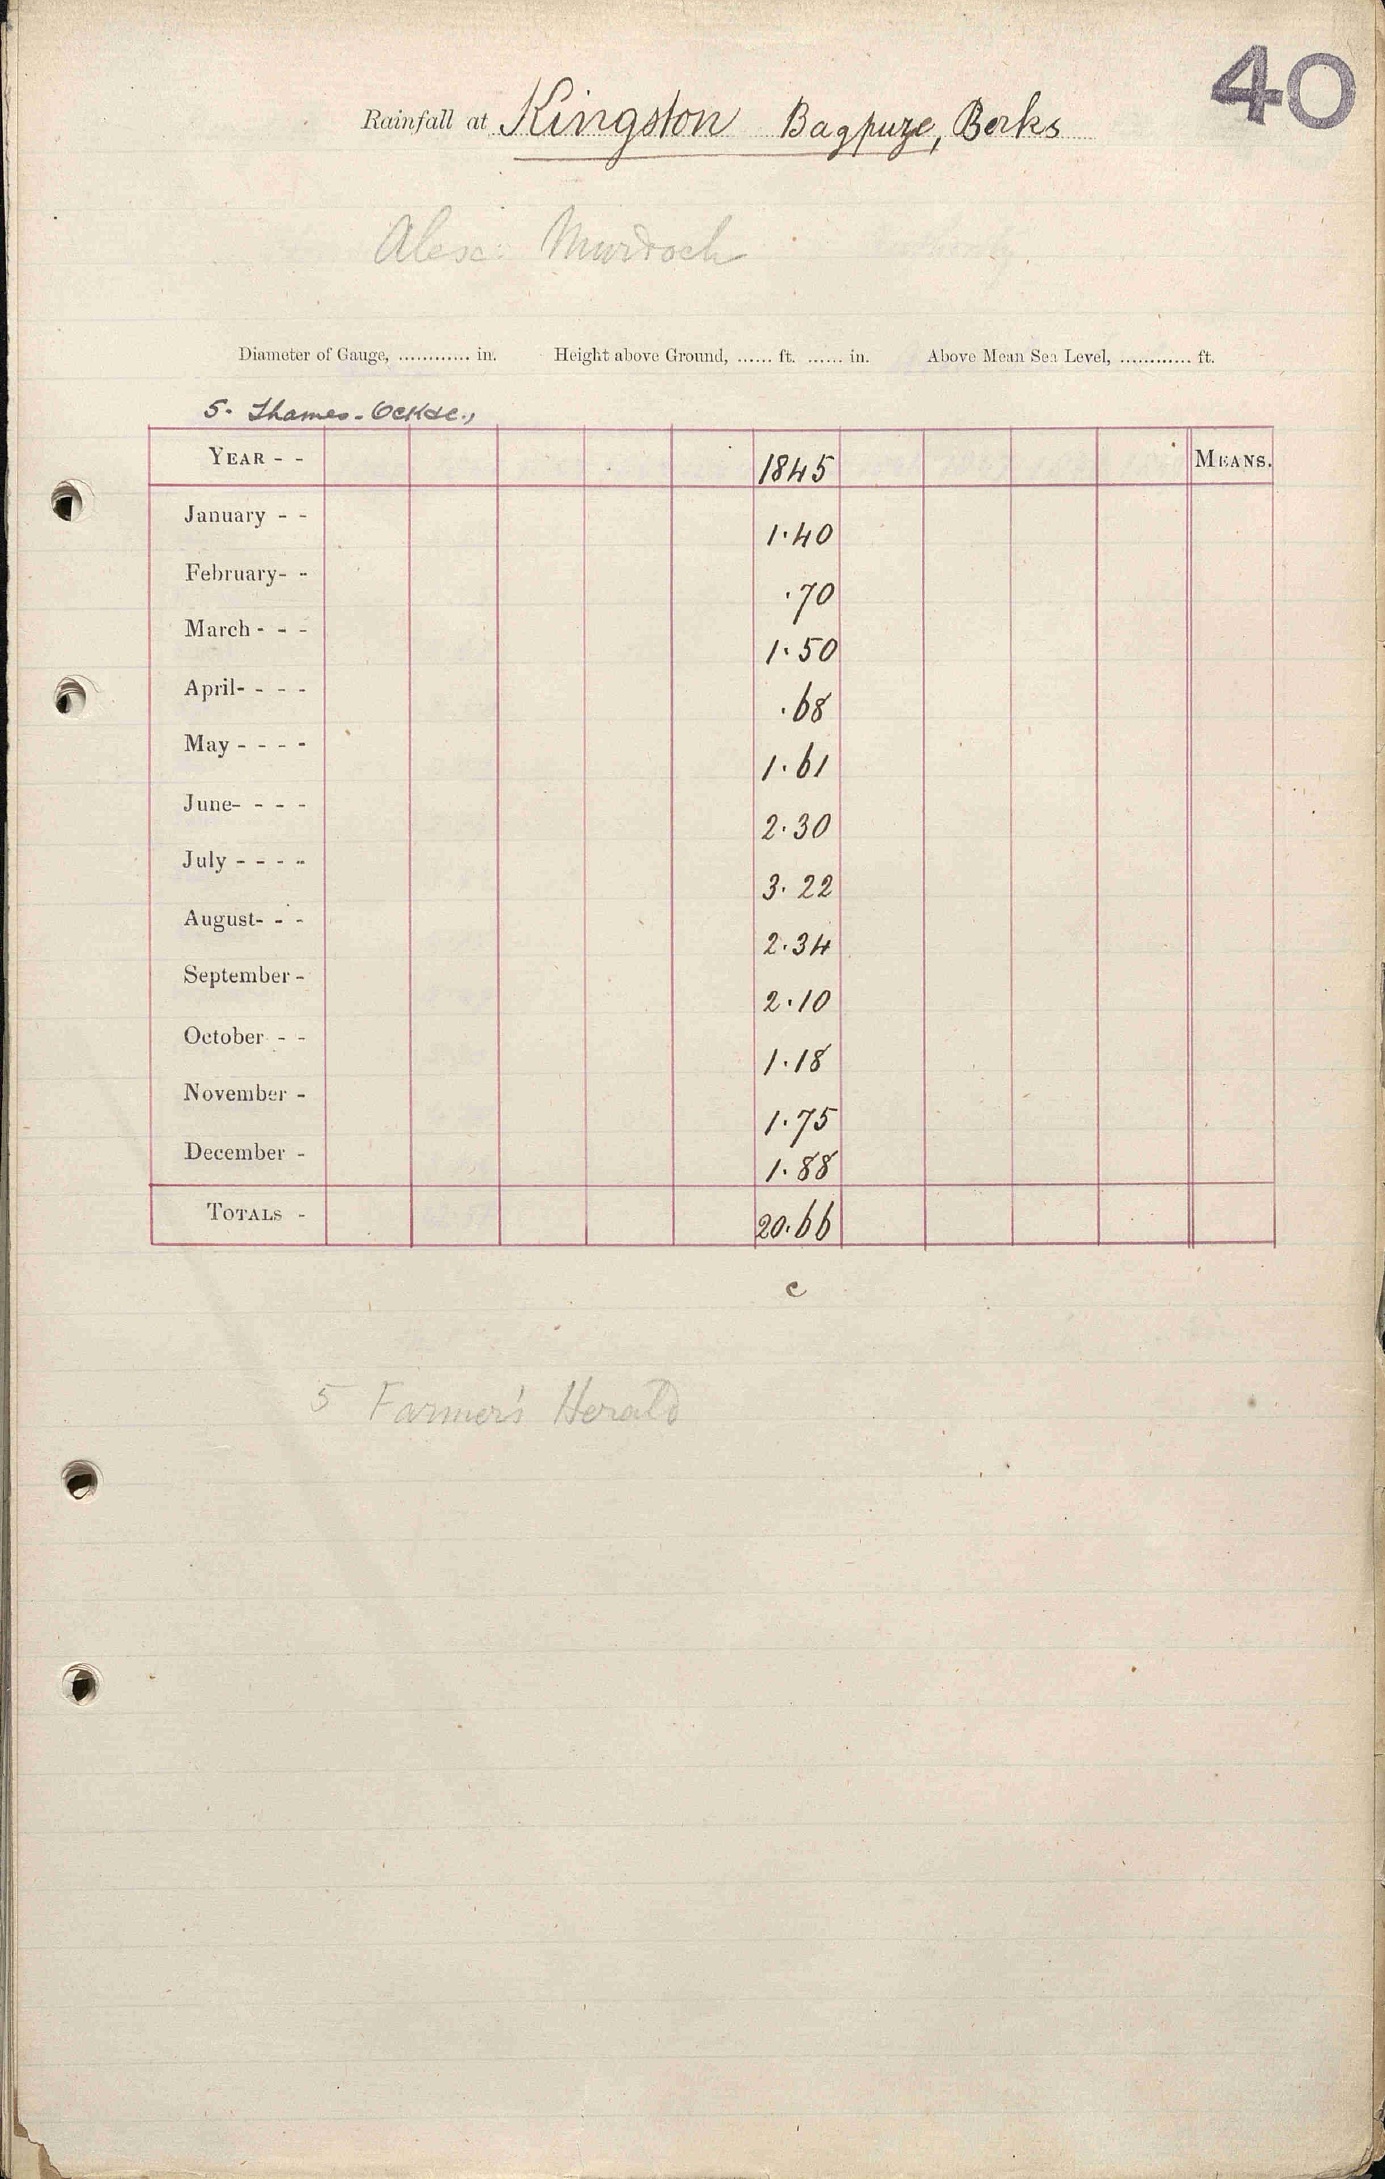 40
Rainfall at Kingston Bagpuze, Berks
Alexr. Murdoch
Diameter of Gauge, ............ in. Height above Ground, ...... ft. ...... in. Above Mean Sea Level, ............ ft.
5. Thames-Ock &c.,
YEAR - - 1845 MEANS.
January - - 1.40
February- - .70
March - - - 1.50
April- - - - .68
May - - - - 1.61
June- - - - 2.30
July - - - - 3.22
August- - - 2.34
September - 2.10
October - - 1.18
November - 1.75
December - 1.88
TOTALS - 20.66
c
5 Farmer's Herald